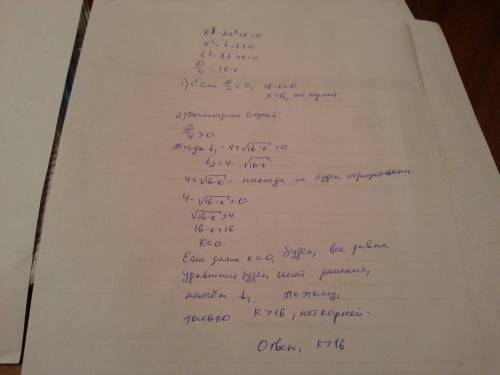 x⁸ - 8x⁴ + к = 0
x⁴ = t, t > 0
t² - 8t + к = 0
D/4 = 16 - к
1) Если D/4 < 0, 16 - к < 0
к > 16, нет корней
2) случай:
D/4 > 0
Тогда t₁ = 4 + √16-к > 0
t₂ = 4 - √16-к
4 + √16-к - никогда не будет отрицательным
4 - √16-к < 0
√16-к > 4
16 - к > 16
к < 0.
Если даже к < 0, будет, все равно
уравнение будет иметь решения,
t₁. Поэтому,
только к > 16, нет корней.
Ответ: к > 16